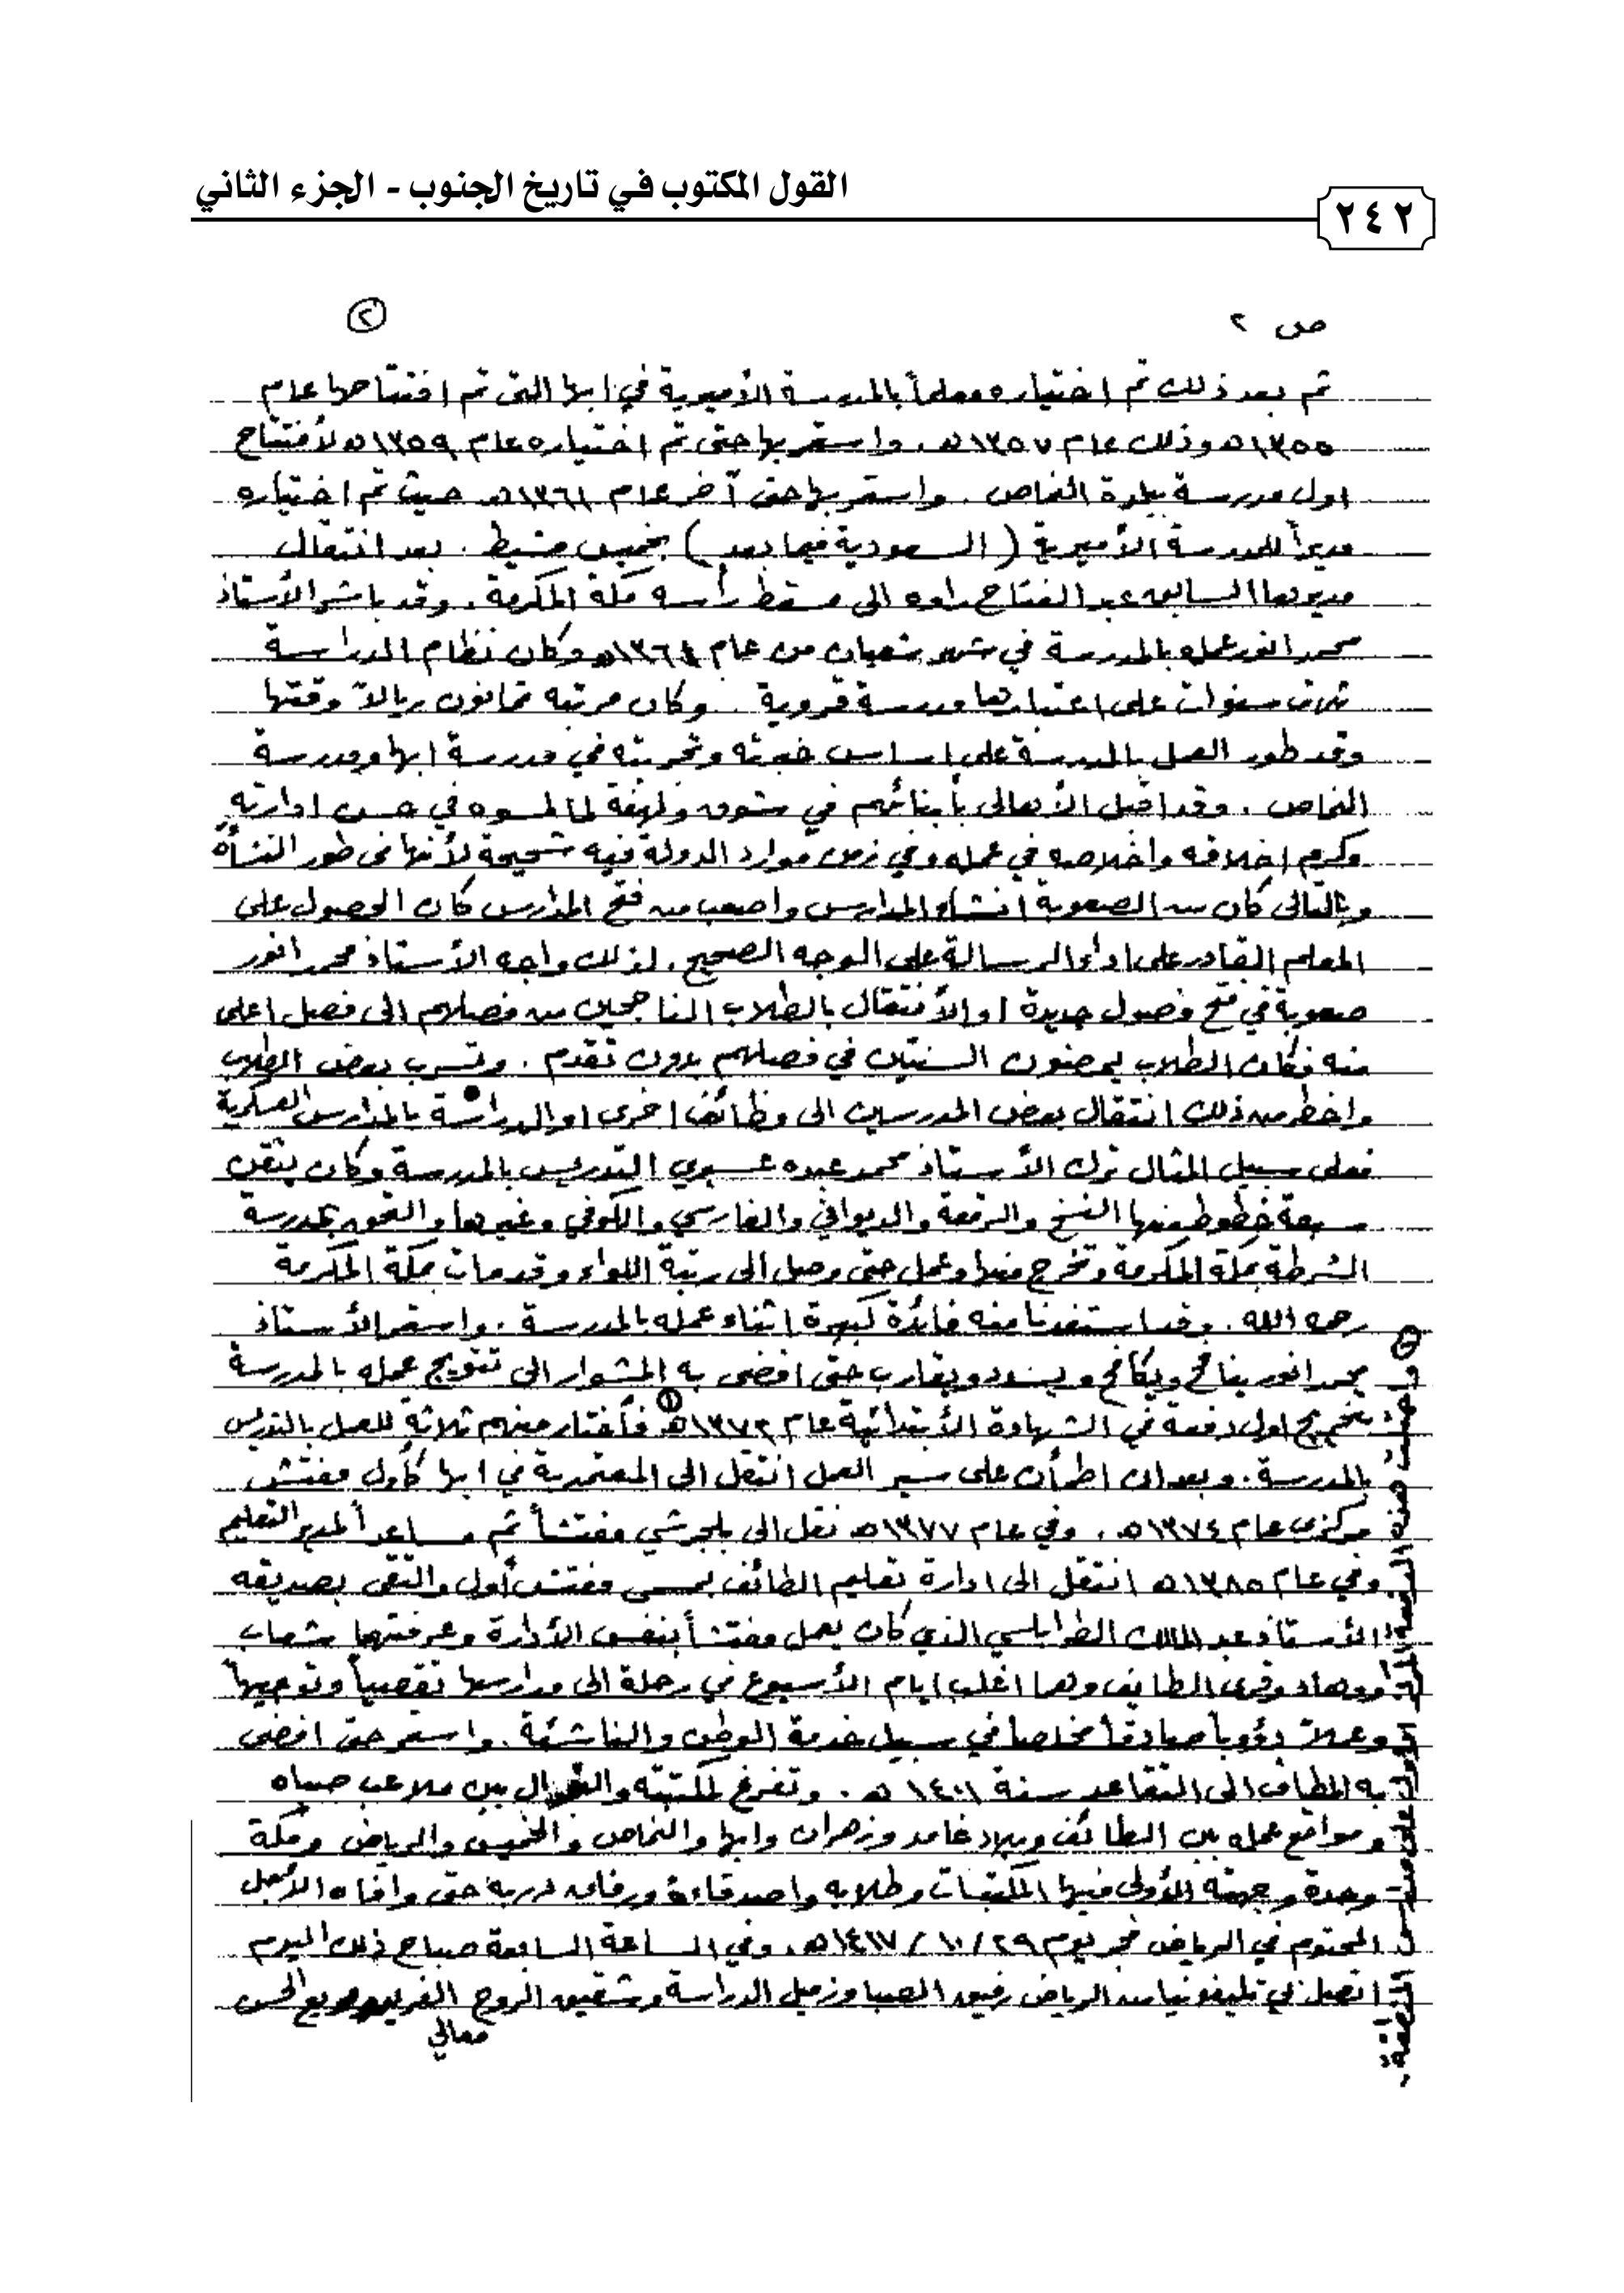 القول المكتوب في تاريخ الجنوب - الجزء الثاني
٢٤٢
ص ٢
٢
ثم بعد ذلك تم اختياره معلماً بالمدرسة الأميرية في ابها التي تم افتتاحها عام
١٣٥٥هـ وذلك عام ١٣٥٧هـ. واستمر بها حتى تم اختياره عام ١٣٥٩هـ لأفتتاح
اول مدرسة ببلدة النماص. واستمر بها حتى آخر عام ١٣٦١هـ حيث تم اختياره
مديراً للمدرسة الأميرية (السعودية فيما بعد) بخميس مشيط. بعد انتقال
مديرها السابق عبد الفتاح راوه الى مسقط رأسه مكة المكرمة. وقد باشر الأستاذ
محمد انور عمله بالمدرسة في شهر شعبان من عام ١٣٦١هـ وكان نظام الدراسة
ثلاث سنوات على اعتبارها مدرسة قروية. وكان مرتبه ثمانون ريالاً وقتها
وقد طور العمل بالمدرسة على اساس خبرته وتجربته في مدرسة ابها ومدرسة
النماص. وقد اقبل الأهالي بأبنائهم في شوق ولهفة لما لمسوه في حسن ادارته
وكرم اخلاقه واخلاصه في عمله وفي زمن موارد الدولة فيه شحيحة لأنها في طور النشأة
وبالتالي كان من الصعوبة انشاء المدارس واصعب من فتح المدارس كان الحصول على
المعلم القادر على اداء الرسالة على الوجه الصحيح. لذلك واجه الأستاذ محمد انور
صعوبة في فتح فصول جديدة او الأنتقال بالطلاب الناجحين من فصلهم الى فصل اعلى
منه فكان الطلاب يمضون السنتين في فصلهم بدون تقدم. وتسرب بعض الطلاب
واخطر من ذلك انتقال بعض المدرسين الى وظائف اخرى او الدراسة بالمدارس العسكرية
فعلى سبيل المثال ترك الأستاذ محمد عبده عسيري التدريس بالمدرسة وكان يتقن
سبعة خطوط منها النسخ والرقعة والديواني والفارسي والكوفي وغيرها والتحق بمدرسة
الشرطة بمكة المكرمة وتخرج منها وعمل حتى وصل الى رتبة اللواء وقد مات بمكة المكرمة
رحمه الله. وقد استفدنا منه فائدة كبيرة اثناء عمله بالمدرسة. واستمر الأستاذ
محمد انور ينافح ويكافح ويسدد ويقارب حتى افضى به المشوار الى تتويج عمله بالمدرسة
بتخريج اول دفعة في الشهادة الأبتدائية عام ١٣٧٢هـ (١) فأختار منهم ثلاثة للعمل بالتدريس
بالمدرسة. وبعد ان اطمأن على سير العمل انتقل الى المعتمدية في ابها كأول مفتش
مركزي عام ١٣٧٤هـ. وفي عام ١٣٧٧هـ نقل الى بلجرشي مفتشاً ثم مساعداً لمدير التعليم
وفي عام ١٣٨٥هـ انتقل الى ادارة تعليم الطائف بمسمى مفتش أول والتقى بصديقه
الأستاذ عبد المالك الطرابلسي الذي كان يعمل مفتشاً بنفس الأدارة وعرفتهما شعاب
ووهاد وقرى الطايف وهما اغلب ايام الأسبوع في رحلة الى مدارسها تقصياً وتوجيهاً
وعملاً دؤوباً صادقاً مخلصاً في سبيل خدمة الوطن والناشئة. واستمر حتى افضى
به المطاف الى التقاعد سنة ١٤٠١هـ. وتفرغ لمكتبته والتجوال بين ملاعب صباه
ومواقع عمله بين الطائف وبلاد غامد وزهران وابها والنماص والخميس والرياض ومكة
وجدة وجهته الأولى فيها المكتبات وطلابه واصدقاءه ورفاق دربه حتى وافاه الأجل
المحتوم في الرياض فجر يوم ٢٩/١٠/١٤١٧هـ. وفي الساعة السابعة صباح ذلك اليوم
اتصل بي تليفونيا من الرياض رفيق الصبا وزميل الدراسة وشقيق الروح الفريد وبديع الحسن
معالي
هذه الدفعة الأولى على مدارس المنطقة.